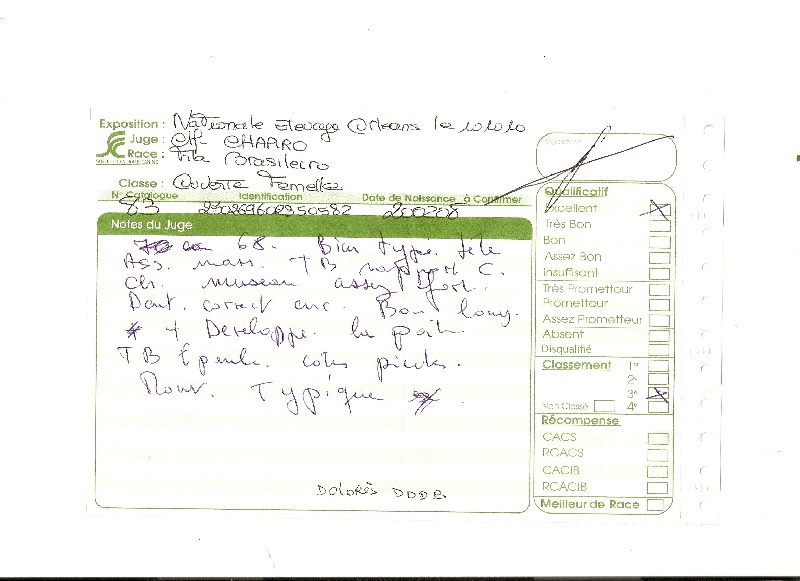 Exposition : Nationale Elevage Orleans le 101010
Juge : Mr CHARRO
Race : Fila Brasileiro
SOCIETE CENTRALE CANINE
Classe : Ouverte Femelles
N° Catalogue Identification Date de Naissance à Confirmer
83 250269602350582 200208
Notes du Juge
68. Bien typé. tete
Ass. mass. TB rapport C.
Ch. museau assez fort.
Dent. correct enc. Bon long.
+ Developpe. la poit.
TB Épaule. cotes pieds.
Mouv. Typique
DOLORÈS DODE
Signature
Qualificatif
Excellent X
Très Bon
Bon
Assez Bon
Insuffisant
Très Prometteur
Prometteur
Assez Prometteur
Absent
Disqualifié
Classement 1er
2e
3e X
Non Classé 4e
Récompense
CACS
RCACS
CACIB
RCACIB
Meilleur de Race